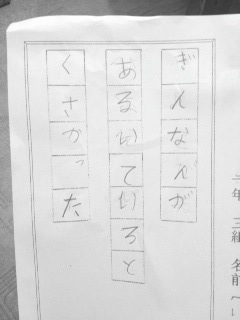 年 三組 名前
ぎんなんが
あるいていると
くさかった